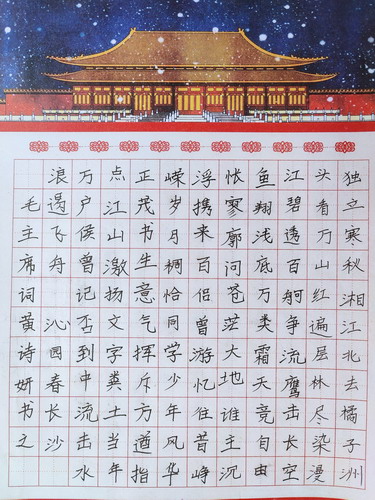 独立寒秋湘江北去橘子洲
头看万山红遍层林尽染漫
江碧透百舸争流鹰击长空
鱼翔浅底万类霜天竞自由
怅寥廓问苍茫大地谁主沉
浮携来百侣曾游忆往昔峥
嵘岁月稠恰同学少年风华
正茂书生意气挥斥方遒指
点江山激扬文字粪土当年
万户侯曾记否到中流击水
浪遏飞舟 沁园春长沙
毛主席词黄诗妍书之